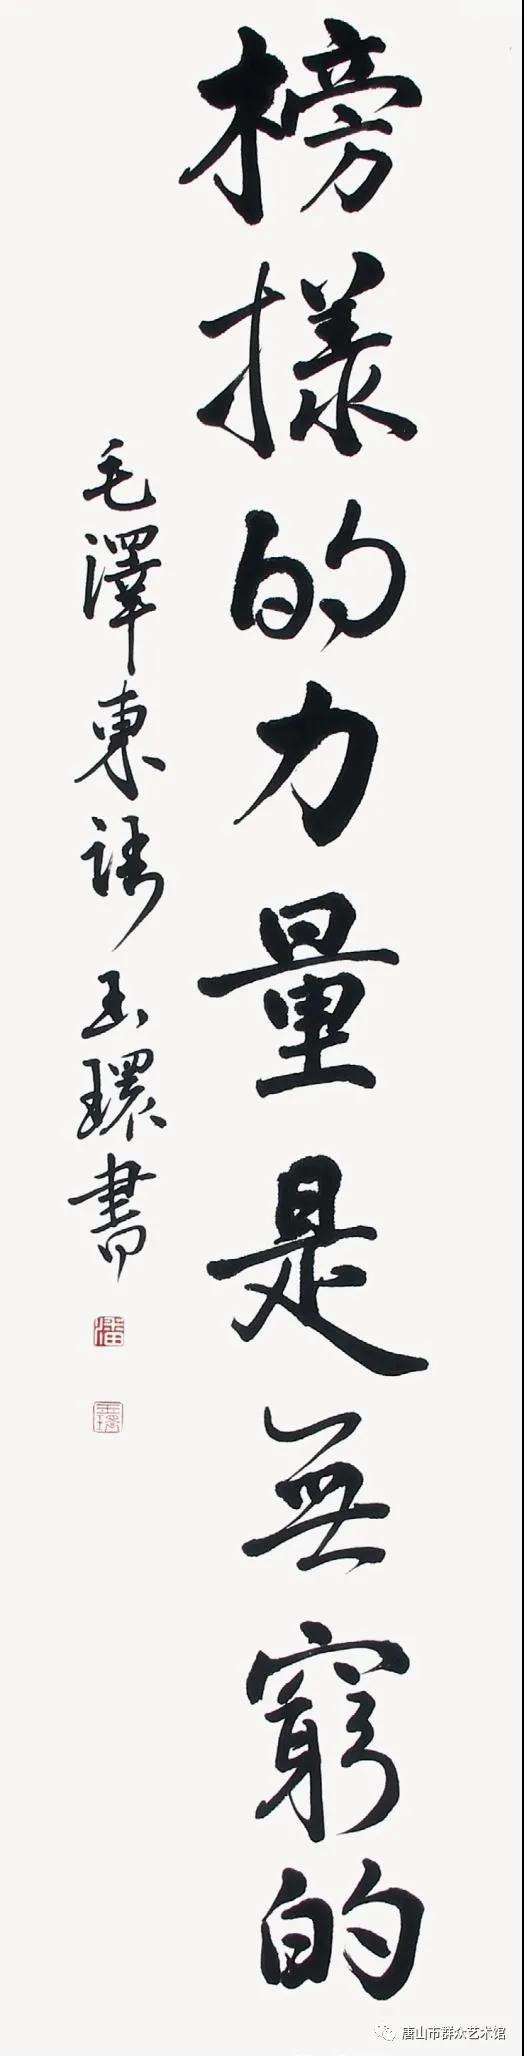 榜樣的力量是無窮的
毛澤東語 玉環書
潘
玉環
唐山市群众艺术馆